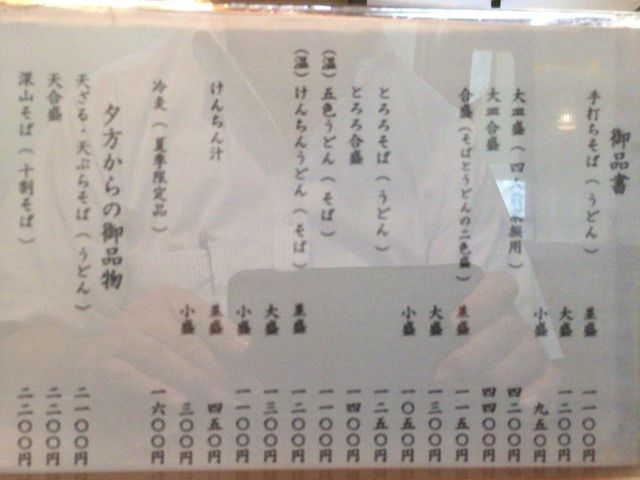 御品書
手打ちそば（うどん） 並盛 一一〇〇円
大盛 一二〇〇円
小盛 九五〇円
大皿盛（四 用） 四二〇〇円
大皿合盛 四四〇〇円
合盛（そばとうどんの二色盛） 並盛 一一五〇円
大盛 一三〇〇円
小盛 一〇五〇円
とろろそば（うどん） 一二五〇円
とろろ合盛 一四〇〇円
（温）五色うどん（そば） 一一〇〇円
（温）けんちんうどん（そば） 並盛 一二〇〇円
大盛 一三〇〇円
小盛 一一〇〇円
けんちん汁 並盛 四五〇円
小盛 三〇〇円
冷麦（夏季限定品） 一六〇〇円
夕方からの御品物
天ざる・天ぷらそば（うどん） 二一〇〇円
天合盛 二二〇〇円
深山そば（十割そば） 二二〇〇円